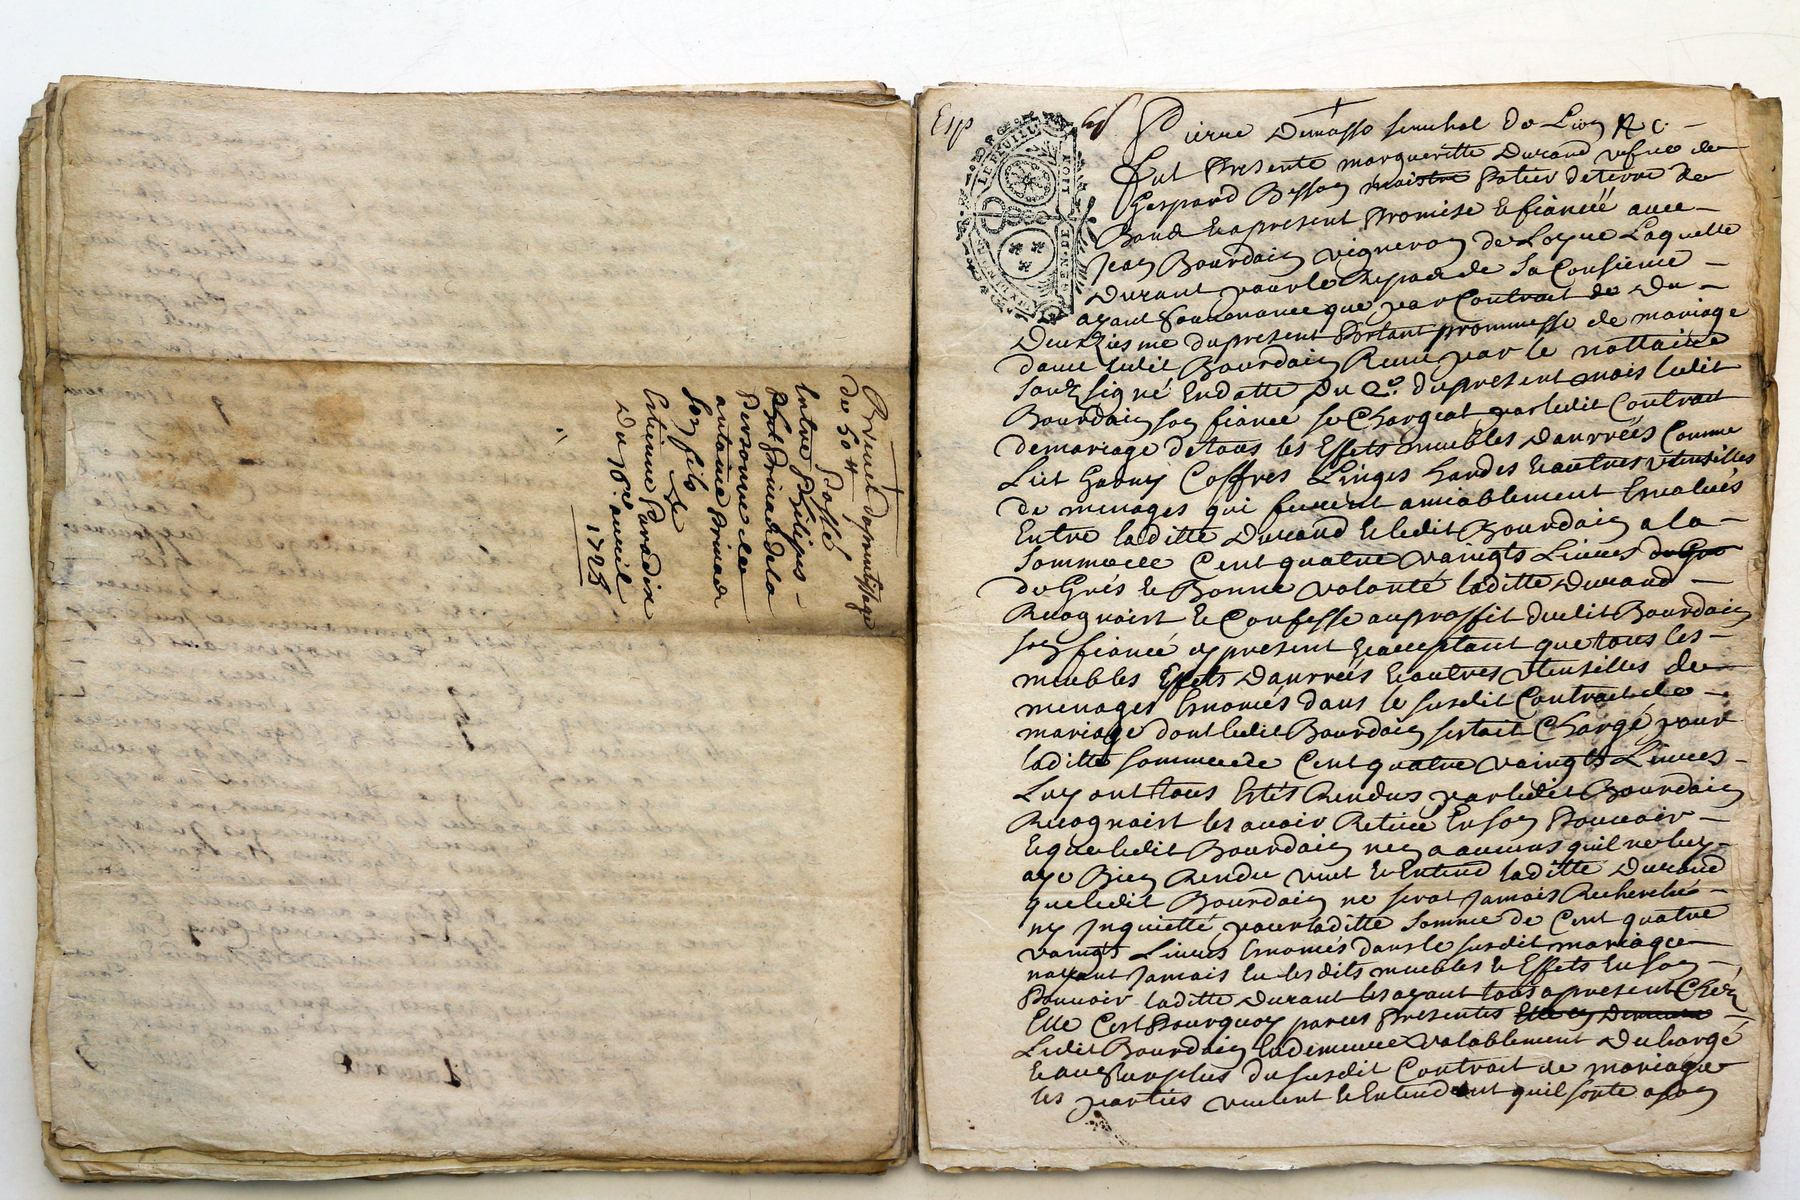 Brevet daprentissage
de 50 ll
passé
Entre Philipes
Prinad de la
Personne de
antoine Prinad
son fils
&
Estienne Paradix
Du 10e avril
1725
Esp
LE FEUILL
MOIT
Pierre Demasso senechal de Lion &c.
Fut Presente margueritte Durand vefve de
Gaspard Bisson maistre Potier de terre de
et apresent Promise et fiancéé avec
Jean Bourdain vigneron de Loyue Laquelle
Durant pour le Repos de sa Consience
ayant Souvenance que par Contrait de Du
Deuxiesme dupresent Portant prommesse de mariage
davec ledit Bourdain Receu par le nottaire
souzsigné En datte Du 2e. dupresent mois ledit
Bourdain son fiancé se Chargeat par ledit Contrait
demariage de tous les Effets meubles danrréés Comme
Lict Coffres Linges hardes et autres utensilles
de menages qui furent amiablement Evalués
Entre laditte Durand et ledit Bourdain a la
somme de Cent quatre vaingts Livres de Gre
de Grés et Bonne volonté laditte Durand
Recognoist et Confesse auproffit dudit Bourdain
son fiancé cy present et acceptant que tous les
meubles Effets danrréés et autres utensilles de
menages Enomés dans le susdit Contrait de
mariage dont ledit Bourdain sestoit Chargé pour
laditte somme de Cent quatre vaingts Livres
Luy ont tous Estés Rendus par ledit Bourdain
Recognoist les avoir Retiré En son Pouvoir
et que ledit Bourdain nen a aucuns quil ne luy
aye Bien Rendu veut et Entend laditte Durand
que ledit Bourdain ne serat Jamais Recherché
ny Inquietté pour laditte somme de Cent quatre
vaingts Livres Enomés dans le susdit mariage
nayant Jamais Eu lesdits meubles et Effets En son
Pouvoir laditte Durant les ayant tous apresent Chez
Elle Cest Pourquoy par ces Presentes Elle en Demeure
Ledit Bourdain En demeure valablement Decharge
et au Surplus du susdit Contrait de mariage
les parties veulent et Entendent quil sorte a son